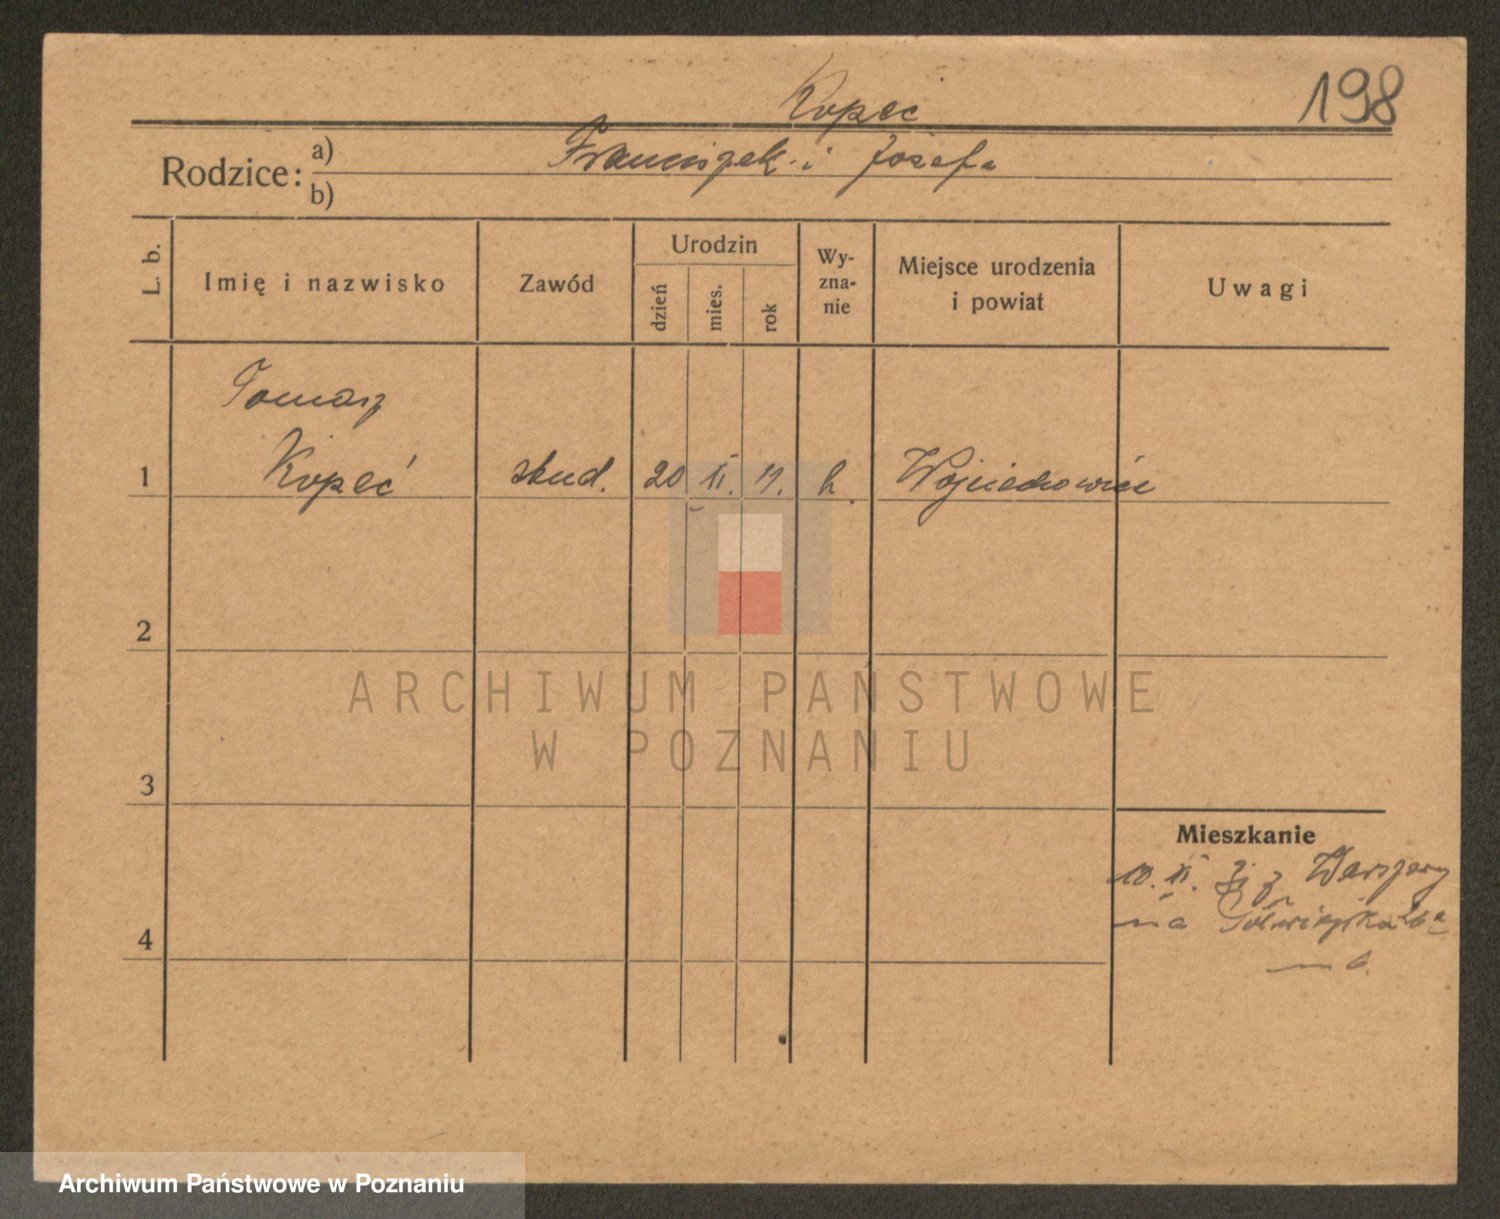 198
Kopeć
Rodzice: a) Franciszek i Józefa
b)
L. b.
Imię i nazwisko
Zawód
Urodzin
dzień
mies.
rok
Wy-
zna-
nie
Miejsce urodzenia
i powiat
Uwagi
Tomasz
1 Kopeć stud. 20 II. 11. k. Wojciechowice
2
ARCHIWUM PAŃSTWOWE
W POZNANIU
3
Mieszkanie
10. II. z Warszawy
na
4
m 6.
Archiwum Państwowe w Poznaniu